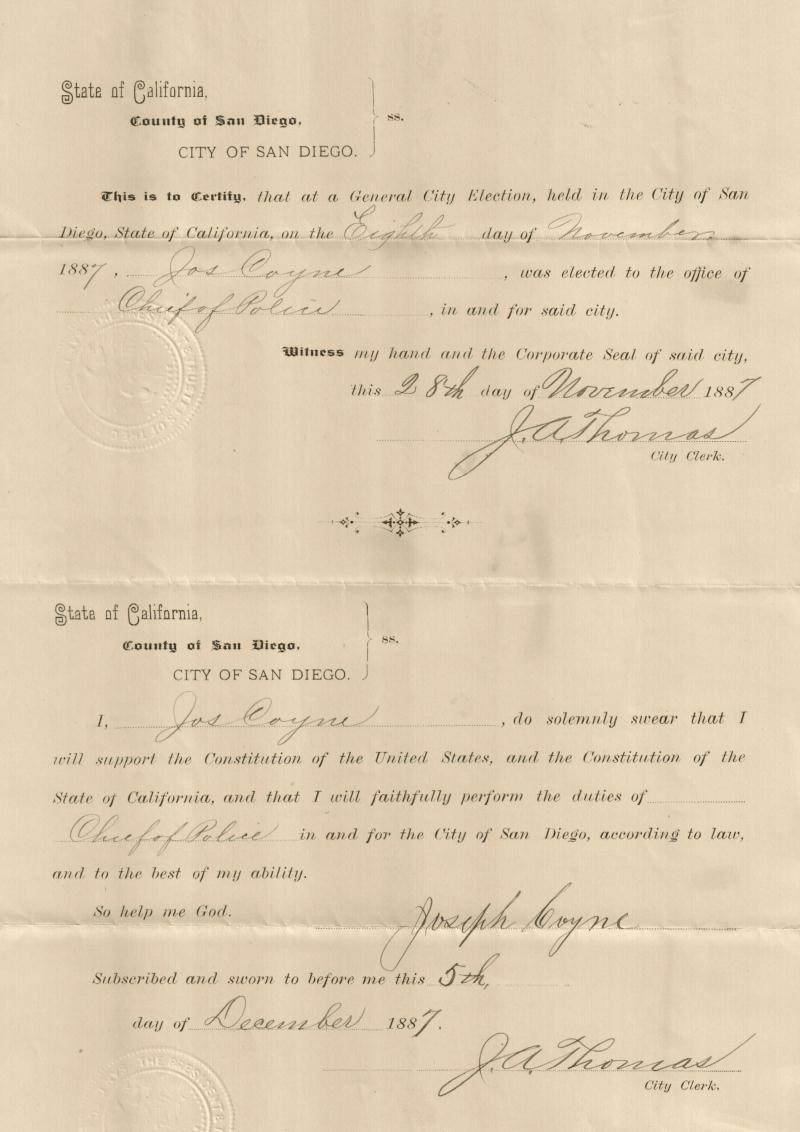 State of California,
County of San Diego,
CITY OF SAN DIEGO.
ss.
This is to Certify, that at a General City Election, held in the City of San
Diego, State of California, on the Eighth day of November
1887, Jos Coyne, was elected to the office of
Chief of Police, in and for said city.
Witness my hand and the Corporate Seal of said city,
this 28th day of November 1887
J. A. Thomas
City Clerk.
State of California,
County of San Diego,
CITY OF SAN DIEGO.
ss.
I, Jos Coyne, do solemnly swear that I
will support the Constitution of the United States, and the Constitution of the
State of California, and that I will faithfully perform the duties of
Chief of Police in and for the City of San Diego, according to law,
and to the best of my ability.
So help me God. Joseph Coyne
Subscribed and sworn to before me this 5th,
day of December 1887.
J. A. Thomas
City Clerk.
THE PRESIDENT